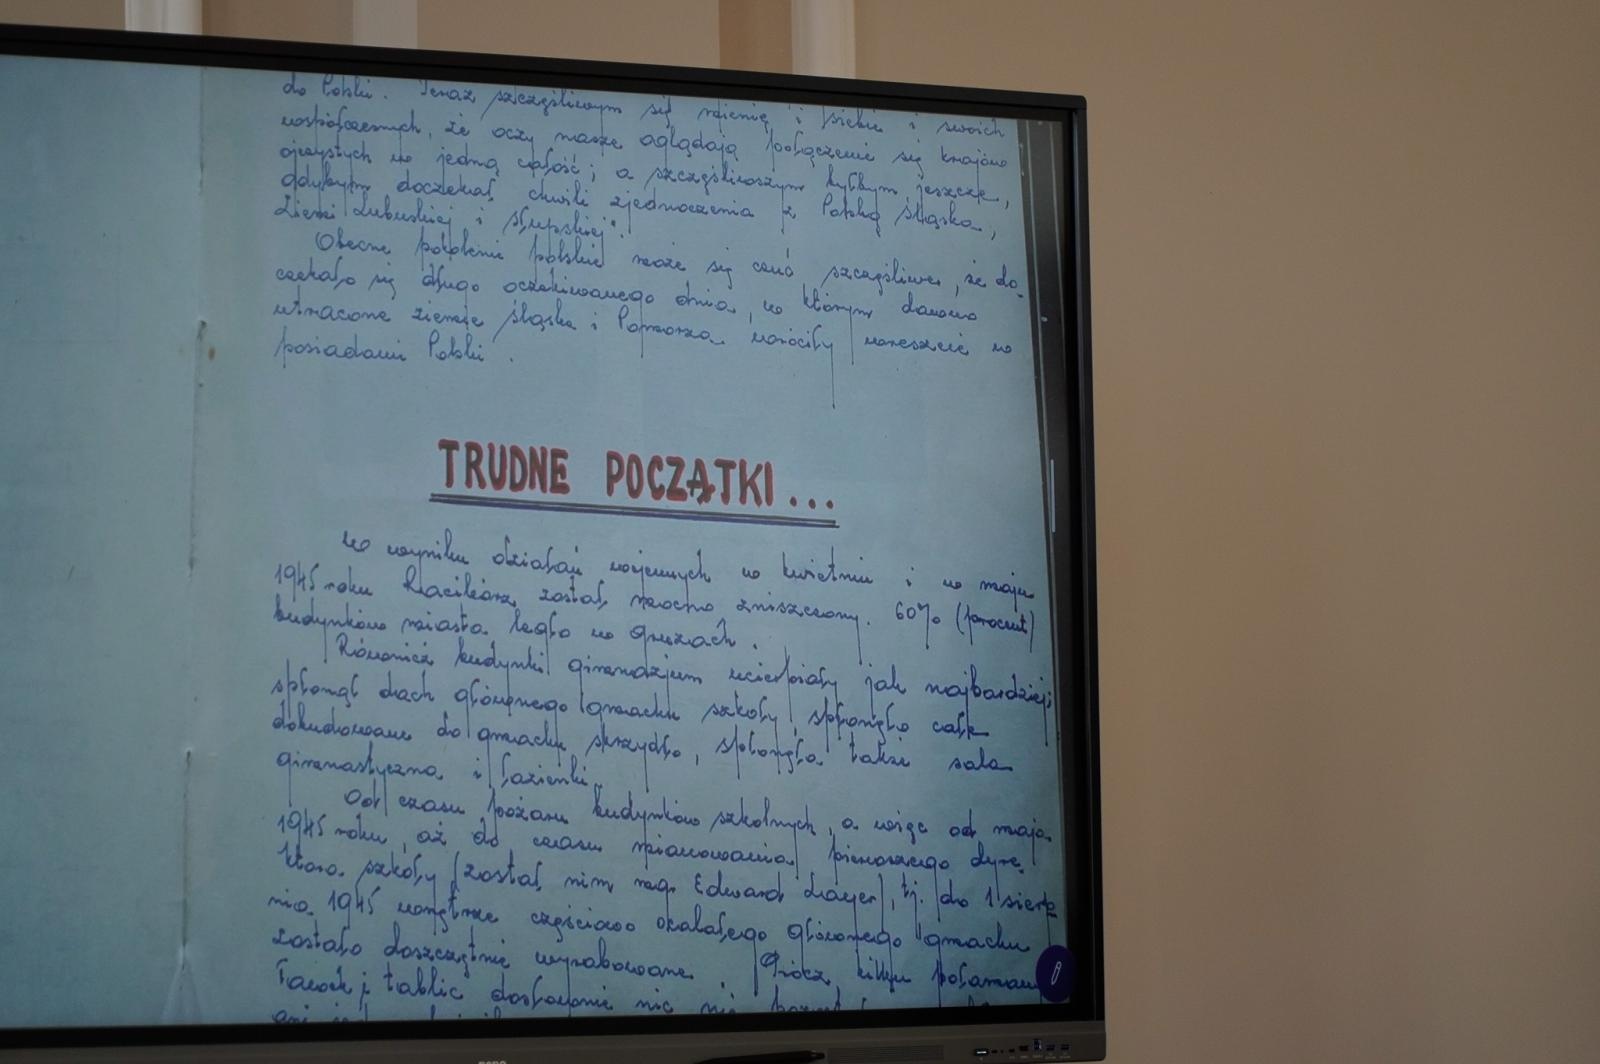 do Polski. Teraz szczęśliwym się mienię i siebie i swoich
współczesnych, że oczy nasze oglądają połączenie się krajów
ojczystych w jedną całość; a szczęśliwszym byłbym jeszcze,
gdybym doczekał chwili zjednoczenia z Polską Śląska,
Ziemi Lubuskiej i Słupskiej".
Obecne pokolenie polskie może się czuć szczęśliwe, że do-
czekało się długo oczekiwanego dnia, w którym dawno
utracone ziemie Śląska i Pomorza wróciły wreszcie w
posiadanie Polski.
TRUDNE POCZĄTKI...
W wyniku działań wojennych w kwietniu i w maju
1945 roku Racibórz został mocno zniszczony. 60% (procent)
budynków miasta legło w gruzach.
Również budynki gimnazjum ucierpiały jak najbardziej;
spłonął dach głównego gmachu szkoły, spłonęło całe
dobudowane do gmachu skrzydło, spłonęła także sala
gimnastyczna i łazienki.
Od czasu pożaru budynków szkolnych, a więc od maja
1945 roku, aż do czasu mianowania pierwszego dyre
ktora szkoły (został nim mgr Edward Layer), tj. do 1 sierp
nia 1945 wnętrze częściowo ocalałego głównego gmachu
zostało doszczętnie wyrabowane. Prócz kilku połamanych
ławek i tablic dosłownie nic nie
ani